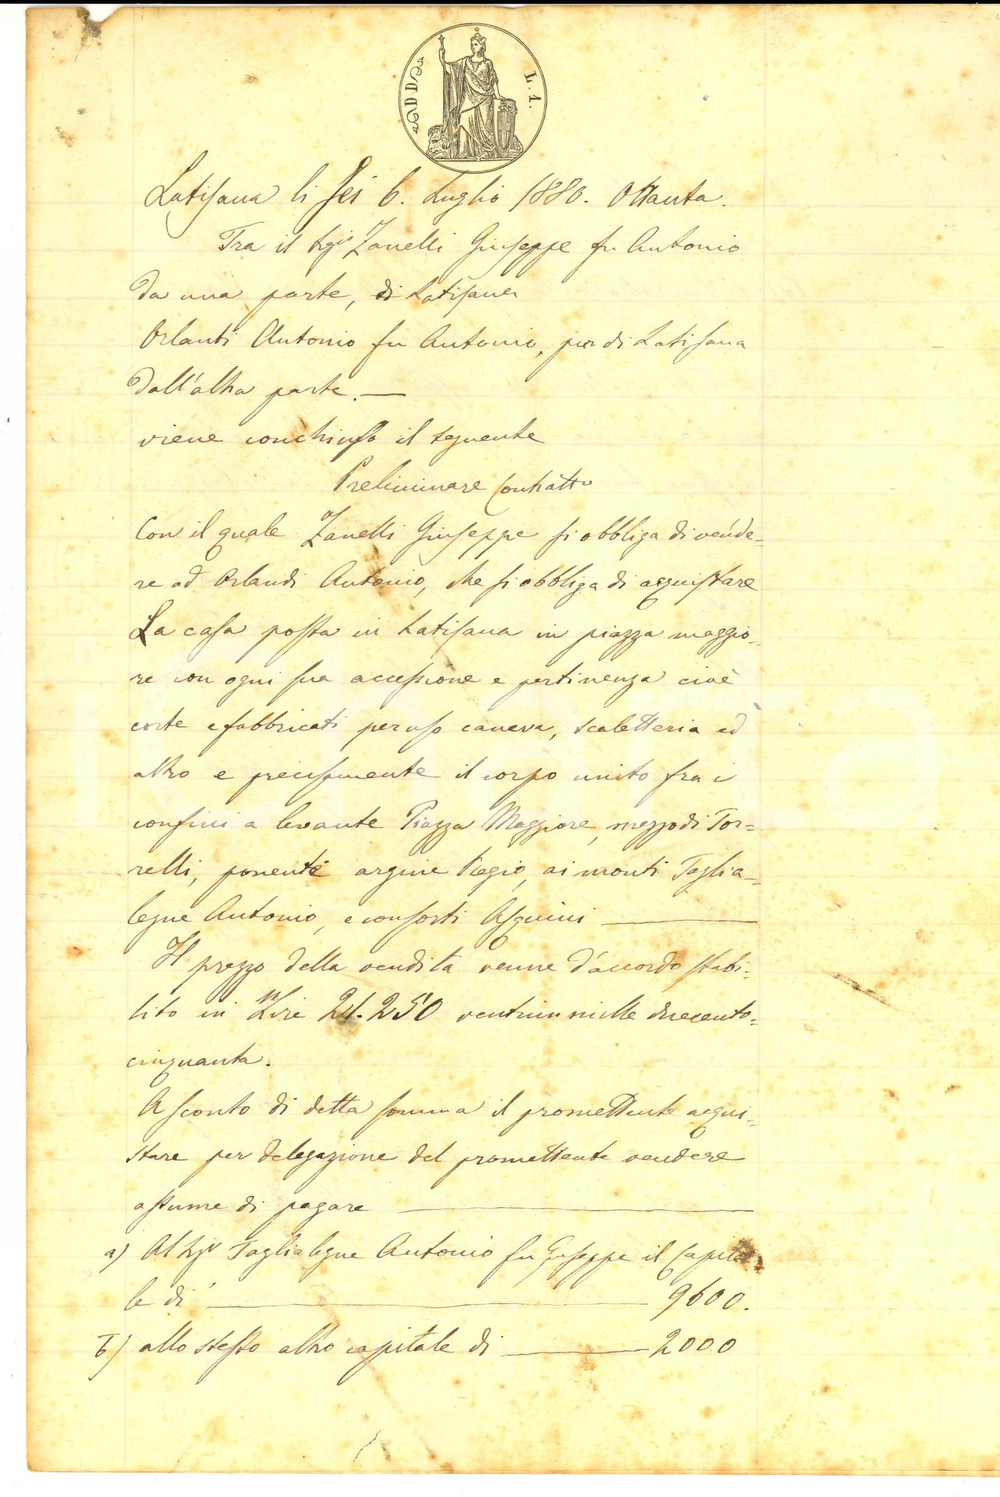 L. 1.
Latisana li Sei 6. Luglio 1880. Ottanta.
Tra il Sigr Zanelli Giuseppe fu Antonio
da una parte, di Latisana
Orlandi Antonio fu Antonio, pur di Latisana
dall'altra parte. —
viene conchiuso il seguente
Preliminare Contratto
Con il quale Zanelli Giuseppe si obbliga di vende-
re ad Orlandi Antonio, che si obbliga di acquistare
La casa posta in Latisana in piazza maggio-
re con ogni sua accessione e pertinenza cioè
corte e fabbricati per uso caneva, scaletteria ed
altro e precisamente il corpo unito fra i
confini a levante Piazza Maggiore, mezzodi Tor-
relli, ponente argine Regio, ai monti Taglia-
legne Antonio, e consorti Asquini —
Il prezzo della vendita venne d'accordo stabi-
lito in Lire 21.250 ventun mille duecento-
cinquanta.
A sconto di detta somma il promettente acqui-
stare per delegazione del promettente vendere
assume di pagare —
a) Al Sigr Taglialegne Antonio fu Giuseppe il Capita-
le di — 9600.
b) allo stesso altro capitale di — 2000